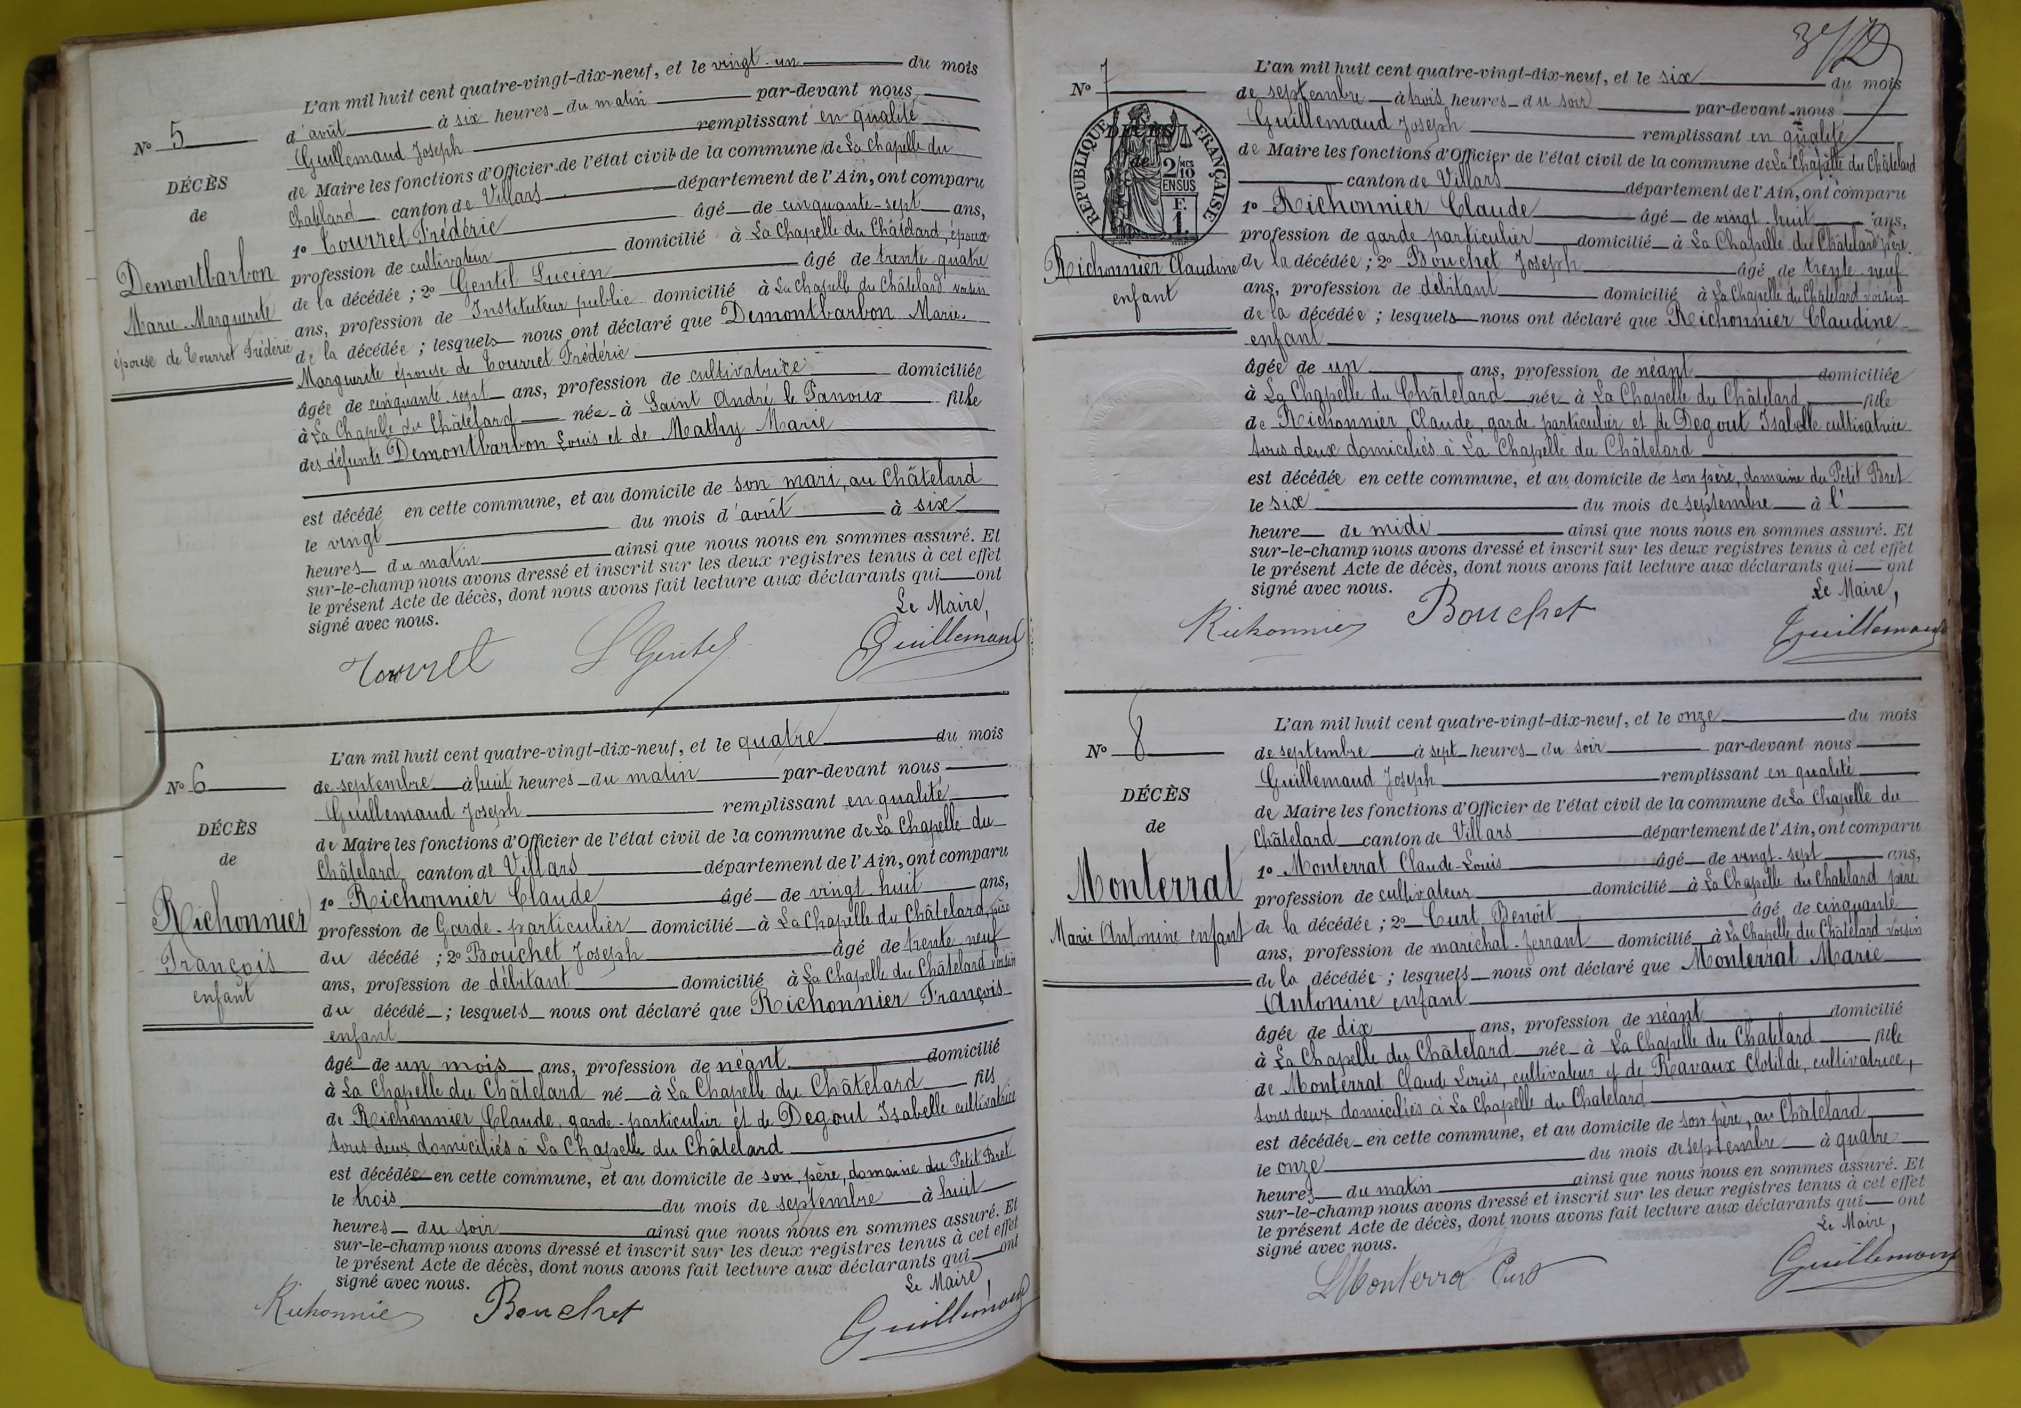 L'an mil huit cent quatre-vingt-dix-neuf, et le vingt-un du mois
d'août à six heures du matin par-devant nous
Guillemaud Joseph remplissant en qualité
de Maire les fonctions d'Officier de l'état civil de la commune de La Chapelle du
Chatelard canton de Villars département de l'Ain, ont comparu
1º Tourret Frédéric âgé de cinquante-sept ans,
profession de cultivateur domicilié à La Chapelle du Châtelard, époux
de la décédée ; 2º Gentil Lucien âgé de trente quatre
ans, profession de Instituteur public domicilié à La Chapelle du Châtelard voisin
de la décédée ; lesquels nous ont déclaré que Demontbarbon Marie
Marguerite épouse de Tourret Frédéric
âgée de cinquante sept ans, profession de cultivatrice domiciliée
à La Chapelle du Châtelard née à Saint André le Panoux fille
des défunts Demontbarbon Louis et de Mathy Marie
est décédé en cette commune, et au domicile de son mari, au Châtelard
le vingt du mois d'août à six
heures du matin ainsi que nous nous en sommes assuré. Et
sur-le-champ nous avons dressé et inscrit sur les deux registres tenus à cet effet
le présent Acte de décès, dont nous avons fait lecture aux déclarants qui ont
signé avec nous.
Le Maire,
Tourret L Gentil Guillemaud
Nº 5
DÉCÈS
de
Demontbarbon
Marie-Marguerite
épouse de Tourret Frédéric
Nº 6
DÉCÈS
de
Richonnier
François
enfant
L'an mil huit cent quatre-vingt-dix-neuf, et le quatre du mois
de septembre à huit heures du matin par-devant nous
Guillemaud Joseph remplissant en qualité
de Maire les fonctions d'Officier de l'état civil de la commune de La Chapelle du
Châtelard canton de Villars département de l'Ain, ont comparu
1º Richonnier Claude âgé de vingt huit ans,
profession de Garde-particulier domicilié à La Chapelle du Châtelard, père
du décédé ; 2º Bouchet Joseph âgé de trente-neuf
ans, profession de débitant domicilié à La Chapelle du Châtelard voisin
du décédé ; lesquels nous ont déclaré que Richonnier François
enfant
âgé de un mois ans, profession de néant domicilié
à La Chapelle du Châtelard né à La Chapelle du Châtelard fils
de Richonnier Claude, garde-particulier et de Degout Isabelle cultivatrice
tous deux domiciliés à La Chapelle du Châtelard
est décédée en cette commune, et au domicile de son père, domaine du Petit Bret
le trois du mois de septembre à huit
heures du soir ainsi que nous nous en sommes assuré. Et
sur-le-champ nous avons dressé et inscrit sur les deux registres tenus à cet effet
le présent Acte de décès, dont nous avons fait lecture aux déclarants qui ont
signé avec nous.
Le Maire,
Richonnier Bouchet Guillemaud
Nº 7
RÉPUBLIQUE FRANÇAISE
2/10
EN SUS
F.
1.
Richonnier Claudine
enfant
L'an mil huit cent quatre-vingt-dix-neuf, et le six du mois
de septembre à trois heures du soir par-devant nous
Guillemaud Joseph remplissant en qualité
de Maire les fonctions d'Officier de l'état civil de la commune de La Chapelle du Châtelard
canton de Villars département de l'Ain, ont comparu
1º Richonnier Claude âgé de vingt-huit ans,
profession de garde particulier domicilié à La Chapelle du Châtelard père
de la décédée ; 2º Bouchet Joseph âgé de trente-neuf
ans, profession de débitant domicilié à La Chapelle du Châtelard voisin
de la décédée ; lesquels nous ont déclaré que Richonnier Claudine
enfant
âgée de un ans, profession de néant domiciliée
à La Chapelle du Châtelard née à La Chapelle du Châtelard fille
de Richonnier Claude, garde particulier et de Degout Isabelle cultivatrice
tous deux domiciliés à La Chapelle du Châtelard
est décédée en cette commune, et au domicile de son père, domaine du Petit Bret
le six du mois de septembre à l'
heure de midi ainsi que nous nous en sommes assuré. Et
sur-le-champ nous avons dressé et inscrit sur les deux registres tenus à cet effet
le présent Acte de décès, dont nous avons fait lecture aux déclarants qui ont
signé avec nous.
Le Maire,
Richonnier Bouchet Guillemaud
Nº 8
DÉCÈS
de
Monterrat
Marie Antonine enfant
L'an mil huit cent quatre-vingt-dix-neuf, et le onze du mois
de septembre à sept heures du soir par-devant nous
Guillemaud Joseph remplissant en qualité
de Maire les fonctions d'Officier de l'état civil de la commune de La Chapelle du
Châtelard canton de Villars département de l'Ain, ont comparu
1º Monterrat Claude-Louis âgé de vingt-sept ans,
profession de cultivateur domicilié à La Chapelle du Chatelard père
de la décédée ; 2º Curt Benoît âgé de cinquante
ans, profession de maréchal-ferrant domicilié à La Chapelle du Châtelard voisin
de la décédée ; lesquels nous ont déclaré que Monterrat Marie
Antonine enfant
âgée de dix ans, profession de néant domicilié
à La Chapelle du Châtelard née à La Chapelle du Chatelard fille
de Monterrat Claud Louis, cultivateur et de Ravaux Clotilde, cultivatrice,
tous deux domiciliés à La Chapelle du Chatelard
est décédée en cette commune, et au domicile de son père, au Châtelard
le onze du mois de septembre à quatre
heures du matin ainsi que nous nous en sommes assuré. Et
sur-le-champ nous avons dressé et inscrit sur les deux registres tenus à cet effet
le présent Acte de décès, dont nous avons fait lecture aux déclarants qui ont
signé avec nous.
Le Maire,
L Monterra Curt Guillemaud